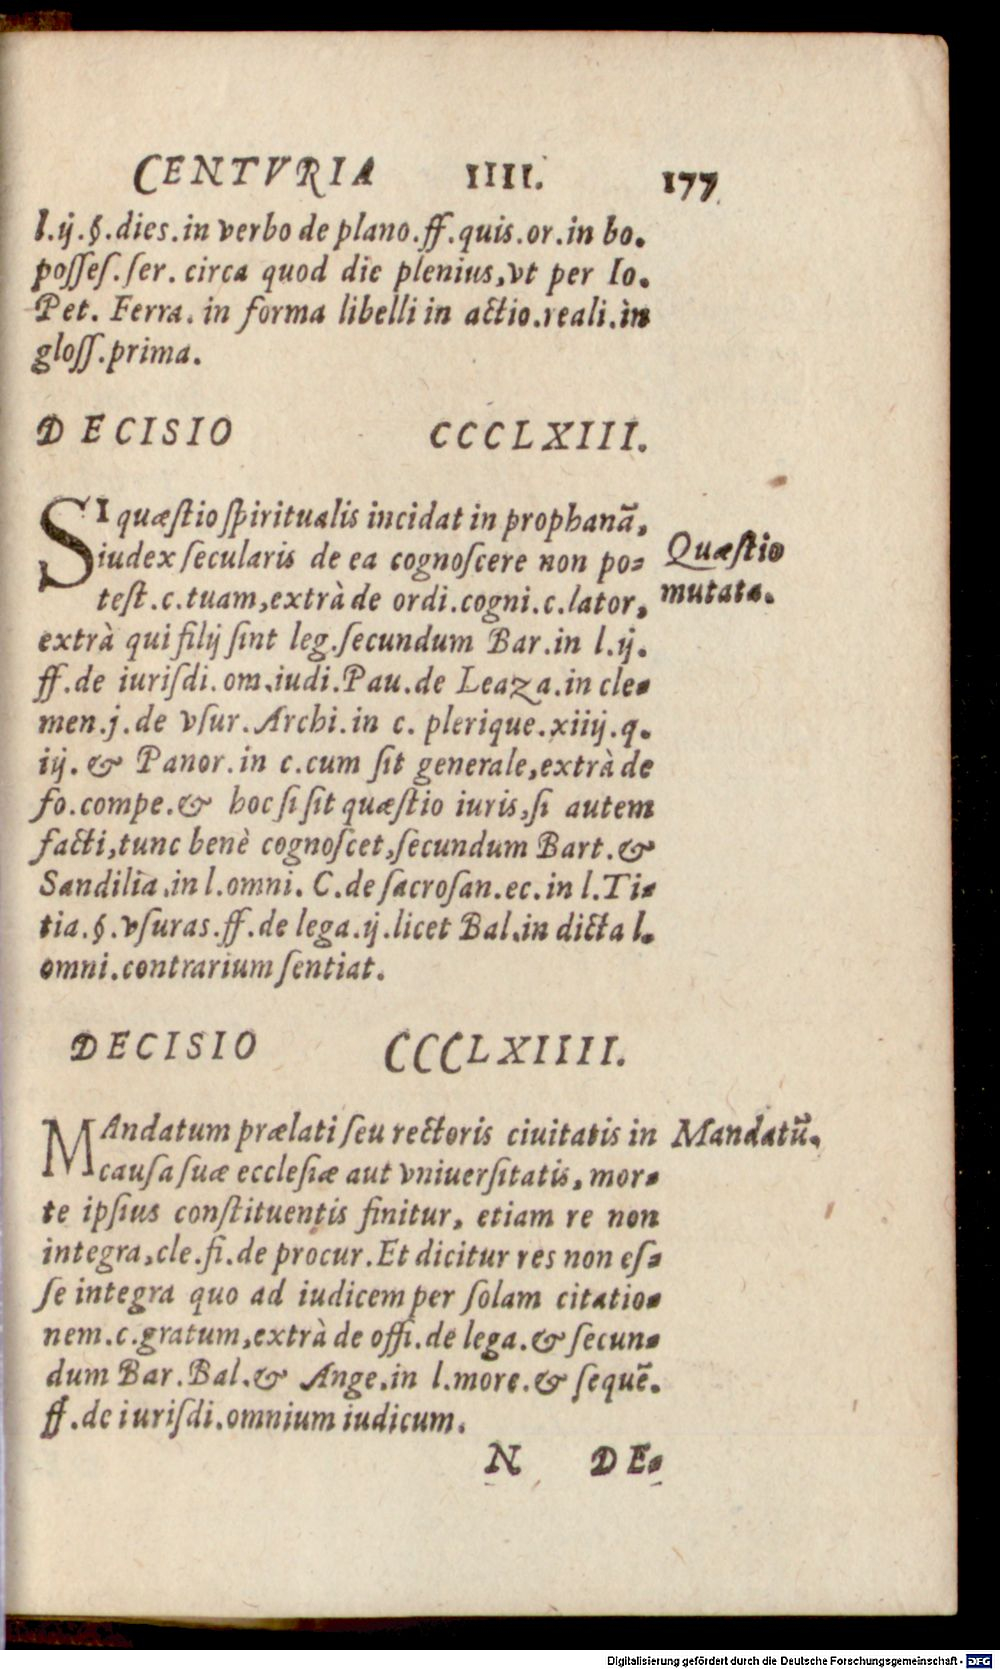 CENTVRIA IIII. 177
l.ij.§.dies.in verbo de plano.ff.quis.or.in bo.
posseſ.ſer. circa quod dic plenius,vt per Io.
Pet. Ferra. in forma libelli in actio.reali.in
gloſſ.prima.
DECISIO CCCLXIII.
SI quæſtio ſpiritualis incidat in prophanā,
iudex ſecularis de ea cognoſcere non po-
teſt.c.tuam,extrà de ordi.cogni.c.lator,
extrà qui filij ſint leg.ſecundum Bar.in l.ij.
ff.de iuriſdi.om.iudi.Pau.de Leaza.in cle-
men.j.de vſur.Archi.in c. plerique.xiiij.q.
ij.& Panor.in c.cum ſit generale,extrà de
fo.compe.& hoc ſi ſit quæſtio iuris,ſi autem
facti,tunc benè cognoſcet,ſecundum Bart.&
Sandilia.in l.omni. C.de ſacroſan.ec.in l.Ti-
tia.§.vſuras.ff.de lega.ij.licet Bal.in dicta l.
omni.contrarium ſentiat.
Quæſtio
mutata.
DECISIO CCCLXIIII.
MAndatum prælati ſeu rectoris ciuitatis in
cauſa ſuæ eccleſiæ aut vniuerſitatis, mor-
te ipſius conſtituentis finitur, etiam re non
integra,cle.fi.de procur.Et dicitur res non eſ-
ſe integra quo ad iudicem per ſolam citatio-
nem.c.gratum,extrà de offi.de lega.& ſecun-
dum Bar.Bal.& Ange.in l.more.& ſequē.
ff.de iuriſdi.omnium iudicum.
Mandatū.
N DE-
Digitalisierung gefördert durch die Deutsche Forschungsgemeinschaft - DFG